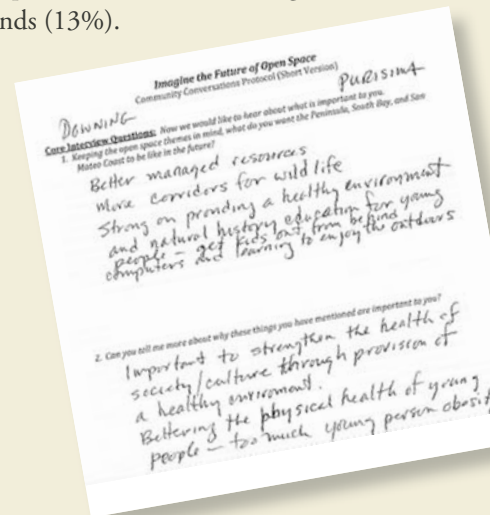 nds (13%).
Imagine the Future of Open Space
Community Conversations Protocol (Short Version)
DOWNING
PURISIMA
Core Interview Questions: Now we would like to hear about what is important to you.
1. Keeping the open space themes in mind, what do you want the Peninsula, South Bay, and San
Mateo Coast to be like in the future?
Better managed resources
More corridors for wild life
Strong on providing a healthy environment
and natural history education for young
people - get kids out from behind
computers and learning to enjoy the outdoors
2. Can you tell me more about why these things you have mentioned are important to you?
Important to strengthen the health of
society/culture through provision of
a healthy enviroment.
Bettering the physical health of young
people - too much young person obesit